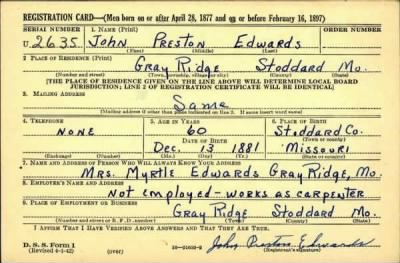 REGISTRATION CARD—(Men born on or after April 28, 1877 and on or before February 16, 1897)
SERIAL NUMBER 1. NAME (Print) ORDER NUMBER
U 2635 John Preston Edwards
(First) (Middle) (Last)
2. PLACE OF RESIDENCE (Print)
Gray Ridge Stoddard Mo.
(Number and street) (Town, township, village, or city) (County) (State)
[THE PLACE OF RESIDENCE GIVEN ON THE LINE ABOVE WILL DETERMINE LOCAL BOARD
JURISDICTION; LINE 2 OF REGISTRATION CERTIFICATE WILL BE IDENTICAL]
3. MAILING ADDRESS
Same
[Mailing address if other than place indicated on line 2. If same insert word same]
4. TELEPHONE 5. AGE IN YEARS 6. PLACE OF BIRTH
NONE 60 Stoddard Co.
DATE OF BIRTH (Town or county)
Dec. 13 1881 Missouri
(Exchange) (Number) (Mo.) (Day) (Yr.) (State or country)
7. NAME AND ADDRESS OF PERSON WHO WILL ALWAYS KNOW YOUR ADDRESS
Mrs. Myrtle Edwards Gray Ridge, Mo.
8. EMPLOYER'S NAME AND ADDRESS
Not employed - works as carpenter
9. PLACE OF EMPLOYMENT OR BUSINESS
Gray Ridge Stoddard Mo.
(Number and street or R. F. D. number) (Town) (County) (State)
I AFFIRM THAT I HAVE VERIFIED ABOVE ANSWERS AND THAT THEY ARE TRUE.
D. S. S. Form 1
(Revised 4-1-42) (over) John Preston Edwards
(Registrant's signature)